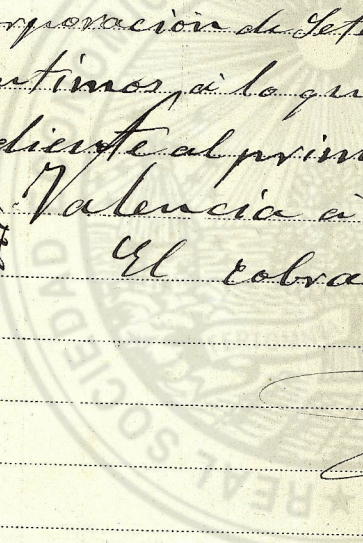 rporación de Sete
ntimos, à lo que
diente al prim
Valencia à
El cobra
REAL SOCIEDAD